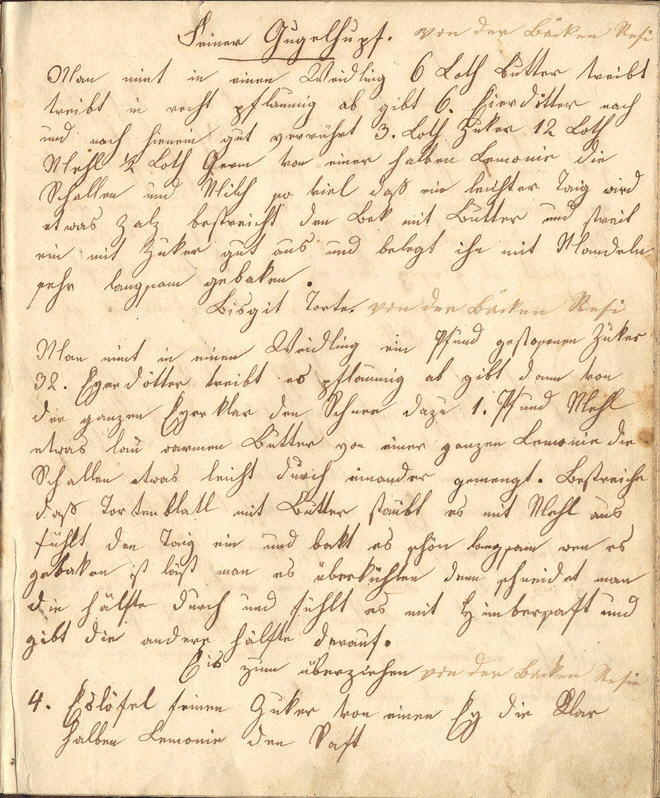 Feiner Gugelhupf. von der Bäcken Resi
Man nimt in einen Weidling 6 Loth Butter treibt
treibt in recht pflaumig ab gibt 6. Eierdötter nach
und nach hienein gut verrührt 3. Loth Zuker 12 Loth
Mehl ½ Loth Germ von einer halben Lemonie die
Schallen und Milch so viel daß ein leichter Taig wird
etwas Salz bestreicht den Bek mit Butter und streit
ein mit Zuker gut aus und belegt ihn mit Mandeln
sehr langsam gebaken.
Bisgit Torte. von der Bäcken Resi
Man nimt in einen Weidling ein Pfund gestosenen Zuker
32. Eyerdötter treibt es pflaumig ab gibt dann von
die ganzen Eyerklar den Schnee dazu 1. Pfund Mehl
etwas lau warmen Butter von einer ganzen Lemonie die
Schallen etwas leicht durch einander gemengt. Bestreiche
daß Tortenblatl mit Butter staubt es mit Mehl aus
fühlt den Taig ein und bakt es schön langsam wen es
gebaken ist läßt man es überkühlen dann schneidet man
die hälfte durch und fühlt es mit Himbersaft und
gibt die andere hälfte darauf.
Eis zum überziehen von der Bäcken Resi
4. Eslöfel feinen Zuker von einen Ey die Klar
halben Lemonie den Saft